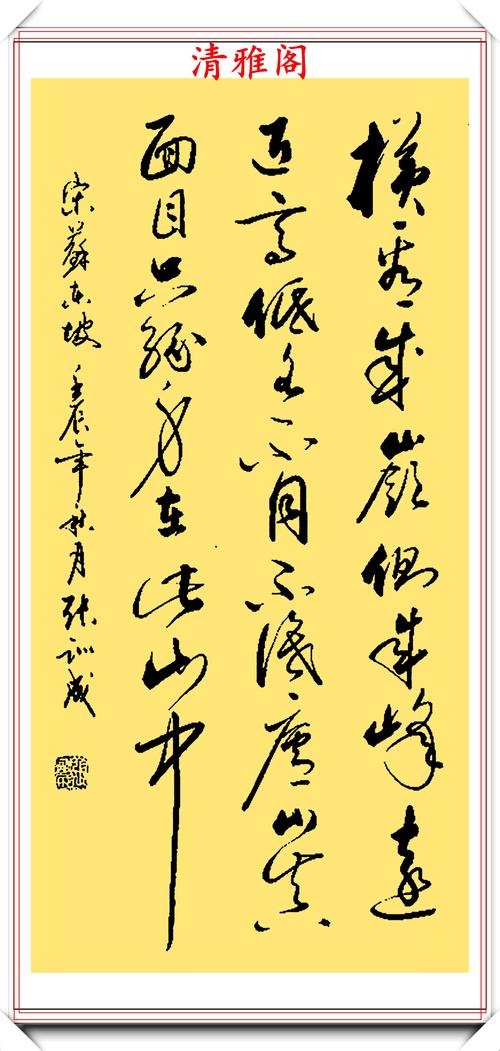 清雅阁
横看成嶺侧成峰遠
近高低各不同不識廬山真
面目只缘身在此山中
宋蘇东坡 壬辰年秋月 张训成